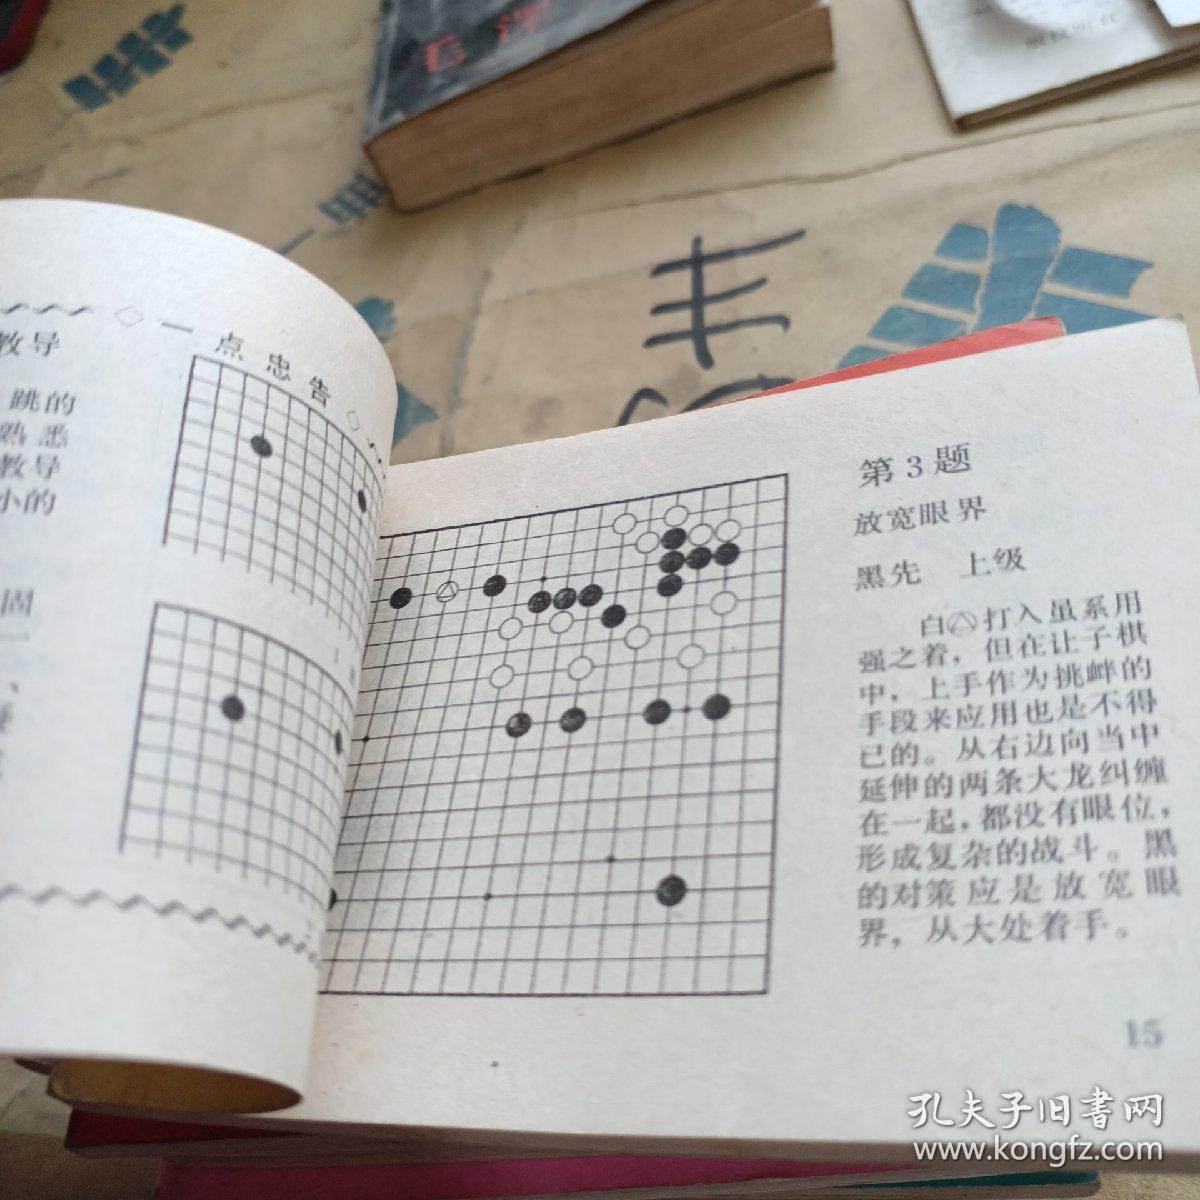 毛泽
版权所有
一曲
教导
跳的
熟悉
教导
小的
固
一
、
一点忠告
第3题
放宽眼界
黑先 上级
白△打入虽系用
强之着，但在让子棋
中，上手作为挑衅的
手段来应用也是不得
已的。从右边向当中
延伸的两条大龙纠缠
在一起，都没有眼位，
形成复杂的战斗。黑
的对策应是放宽眼
界，从大处着手。
15
孔夫子旧书网
www.kongfz.com